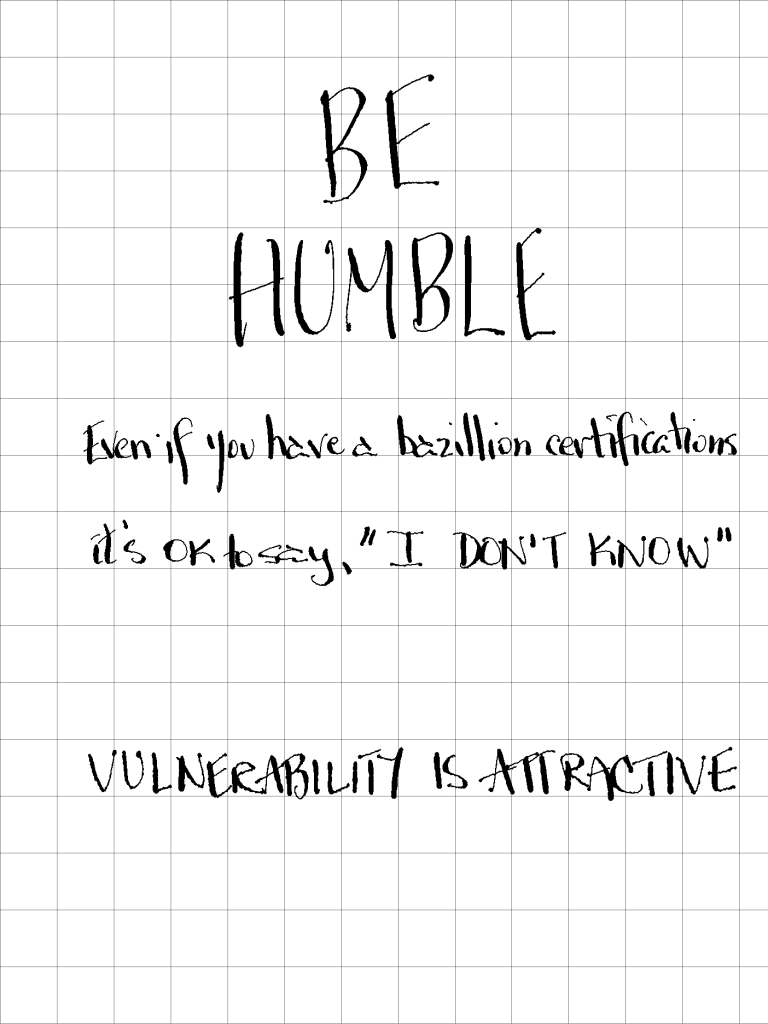 BE
HUMBLE
Even if you have a bazillion certifications
it's OK to say, "I DON'T KNOW"
VULNERABILITY IS ATTRACTIVE